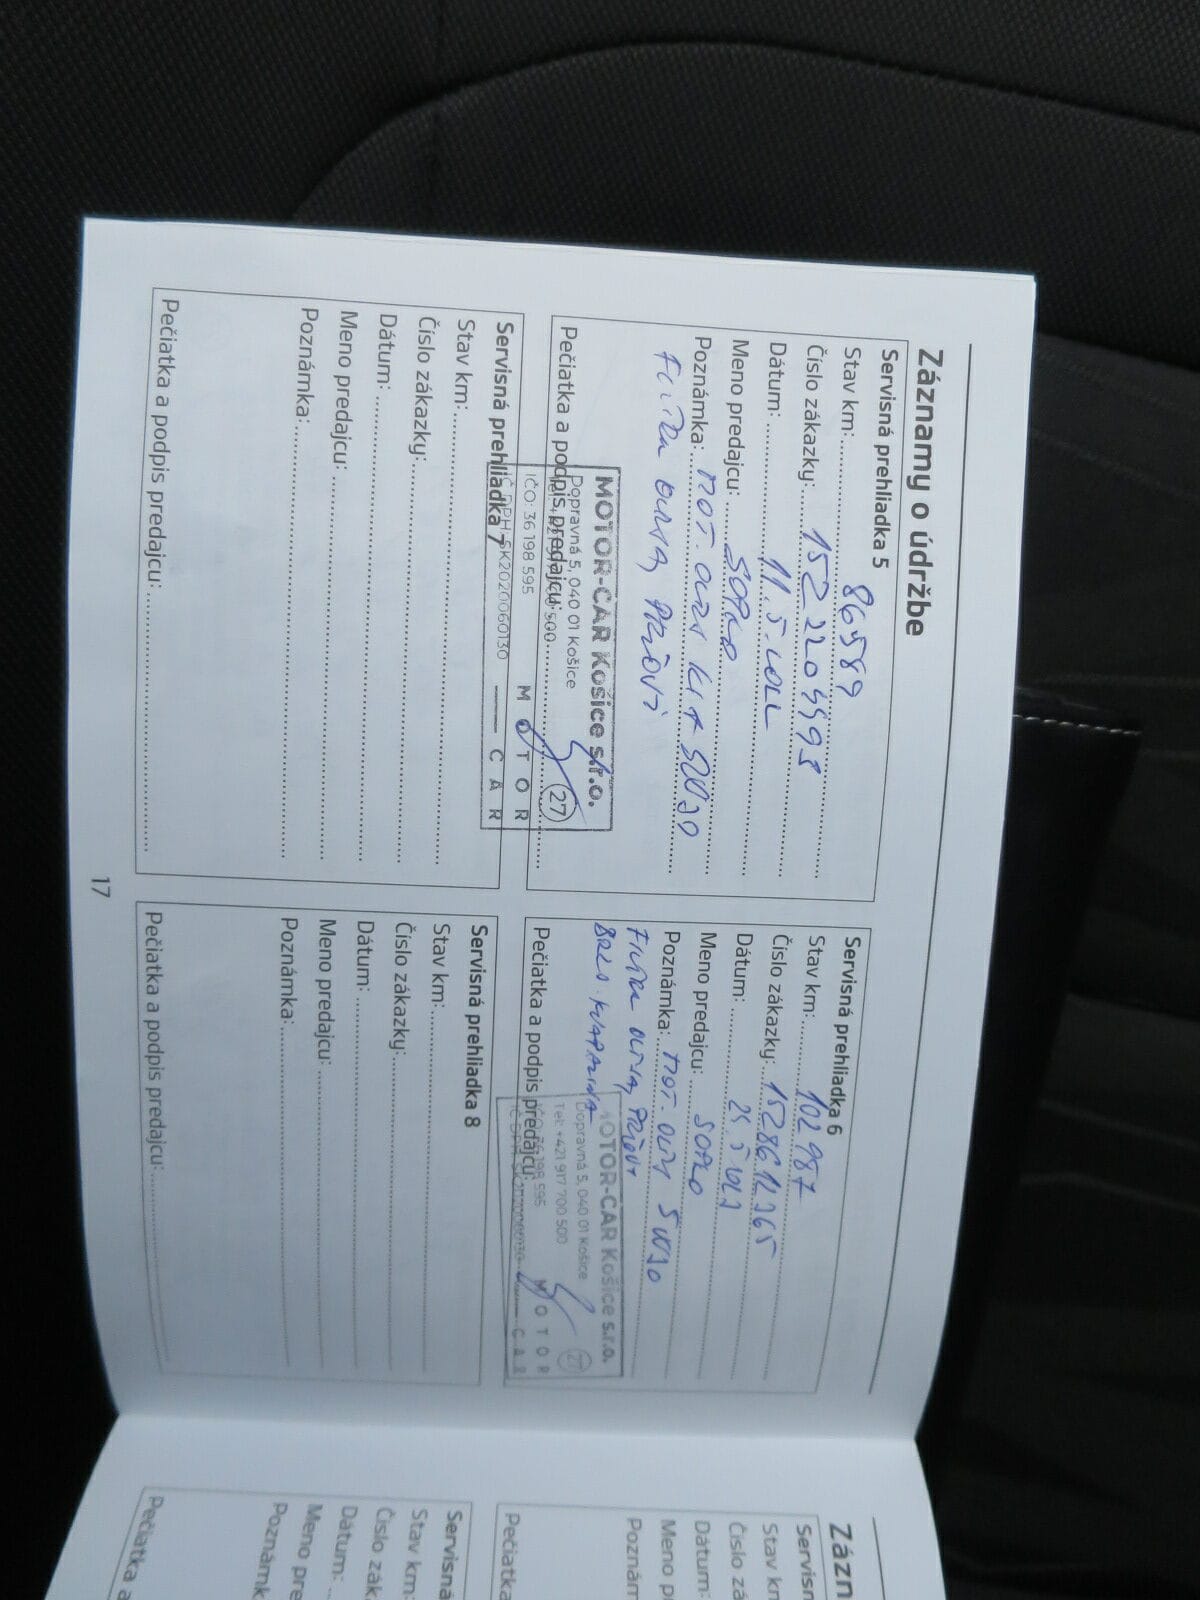 Záznamy o údržbe
Servisná prehliadka 5
Stav km: 86589
Číslo zákazky: 152204498
Dátum: 11.5.
Meno predajcu: SOPKO
Poznámka: MOT. OLEJ 5W30
FILTER OLEJA,
Pečiatka a podpis predajcu:
MOTOR-CAR Košice s.r.o.
Dopravná 5, 040 01 Košice
500
27
IČO: 36 198 595
IČ DPH SK2020060130
MOTOR
CAR
Servisná prehliadka 6
Stav km: 102987
Číslo zákazky: 1528612365
Dátum:
Meno predajcu: SOPKO
Poznámka: MOT. OLEJ 5W30
FILTER OLEJA,
BRZD. KVAPALINA
Pečiatka a podpis predajcu:
MOTOR-CAR Košice s.r.o.
Dopravná 5, 040 01 Košice
Tel: +421 917 700 500
27
IČO 36 198 595
MOTOR
CAR
Servisná prehliadka 7
Stav km:
Číslo zákazky:
Dátum:
Meno predajcu:
Poznámka:
Pečiatka a podpis predajcu:
Servisná prehliadka 8
Stav km:
Číslo zákazky:
Dátum:
Meno predajcu:
Poznámka:
Pečiatka a podpis predajcu:
17
Názn
Servisn
Stav kn
Číslo zá
Dátum:
Meno p
Poznám
Pečiatka
Servisná
Stav km:
Číslo zák
Dátum:
Meno pre
Poznámk
Pečiatka a